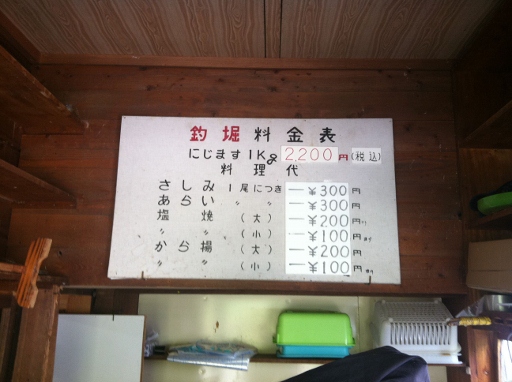 釣堀料金表
にじます1Kg 2,200円(税込)
料理代
さしみ 1尾につき 一¥300円
あらい 〃 〃 一¥300円
塩焼 (大) 一¥200円
〃 〃 (小) 一¥100円
から揚 (大) 一¥200円
〃 〃 (小) 一¥100円